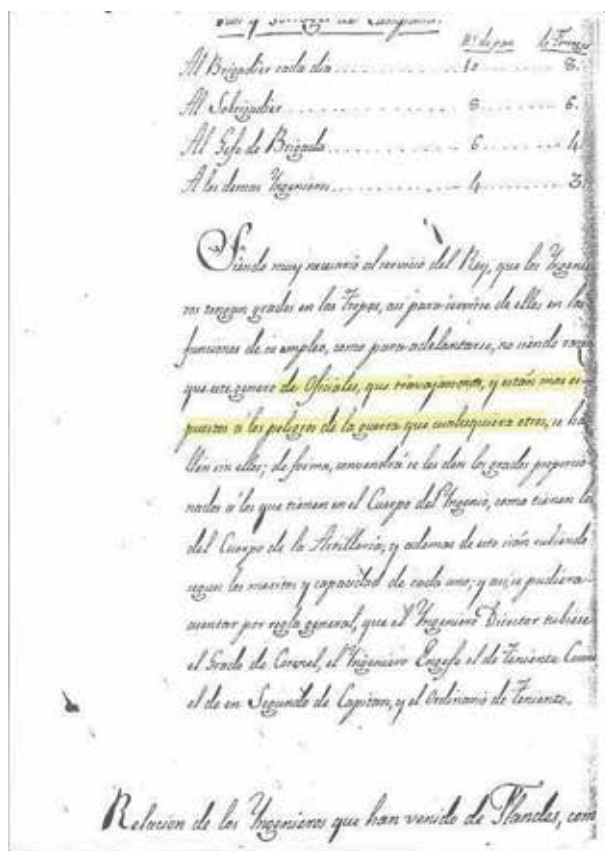 Pan y de Campaña.
Rs. de pan de Forrage
Al Brigadier cada dia 10 8.
Al Sobrigadier 8 6.
Al Gefe de Brigada 6 4
A los demas Yngenieros 4 3
Siendo muy necesario al servicio del Rey, que los Yngenie
ros tengan grados en las Tropas, asi para servirse de ellos en las
funciones de su empleo, como para adelantarse, no siendo razon
que este genero de Oficiales, que mas y están mas es
puestos á los peligros de la guerra que cualesquiera otros, se ha
llen sin ellos; de forma, convendrá se les den los grados proporcio
nados á los que tienen en el Cuerpo del Yngenio, como tienen los
del Cuerpo de la Artilleria; y ademas de esto irán subiendo
segun los meritos y capacidad de cada uno; y asi, se pudiera
asentar por regla general, que el Yngeniero Director tubiese
el Grado de Coronel, el Yngeniero Engefe el de Teniente Coron
el de en Segundo de Capitan, y el Ordinario de Teniente.
Relacion de los Yngenieros que han venido de Flandes, com